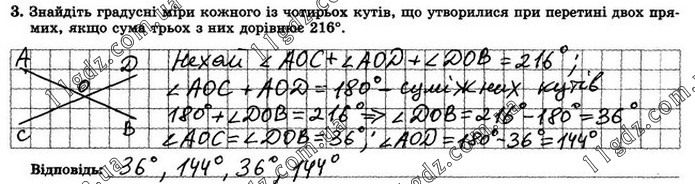 3. Знайдіть градусні міри кожного із чотирьох кутів, що утворилися при перетині двох пря-
мих, якщо сума трьох з них дорівнює 216°.
A D O C B
Нехай ∠AOC+∠AOD+∠DOB=216°;
∠AOC+AOD=180°-суміжних кутів
180°+∠DOB=216°=>∠DOB=216°-180°=36°
∠AOC=∠DOB=36°; ∠AOD=180°-36°=144°
Відповідь: 36°, 144°, 36°, 144°
11gdz.com.ua